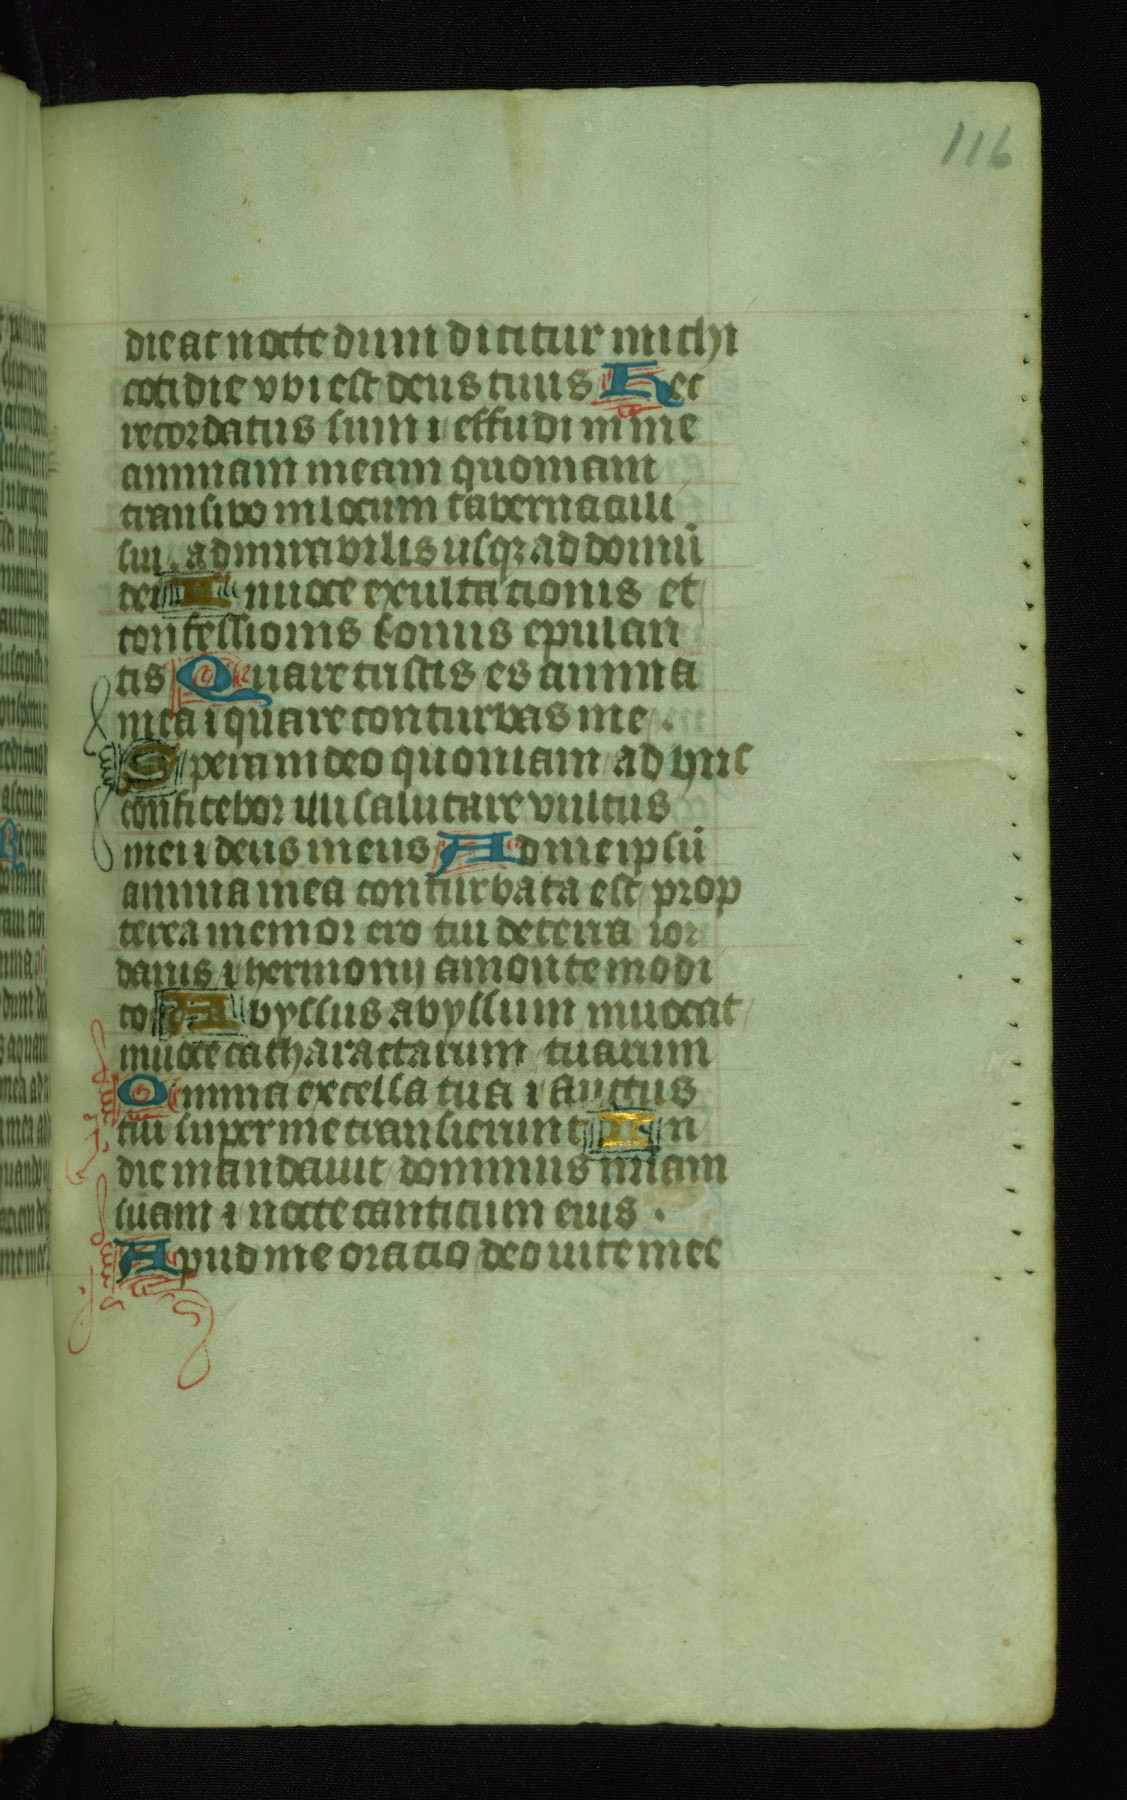 116
die ac nocte dum dicitur michi
cotidie vbi est deus tuus Hec
recordatus sum ⁊ effudi in me
animam meam quoniam
transibo in locum tabernaculi
sui admirabilis usqꝫ ad domū
dei In uoce exultacionis et
confessionis sonus epulan
tis Quare tristis es anima
mea ⁊ quare conturbas me
Spera in deo quoniam adhuc
confitebor illi salutare vultus
mei ⁊ deus meus Ad me ipsū
anima mea conturbata est prop
terea memor ero tui de terra ior
danis ⁊ hermonij a monte modi
co Abyssus abyssum inuocat
in uoce catharactarum tuarum
Omnia excelsa tua ⁊ fluctus
tui super me transierunt In
die mandauit dominus miam
suam ⁊ nocte canticum eius .
Apud me oracio deo uite mee